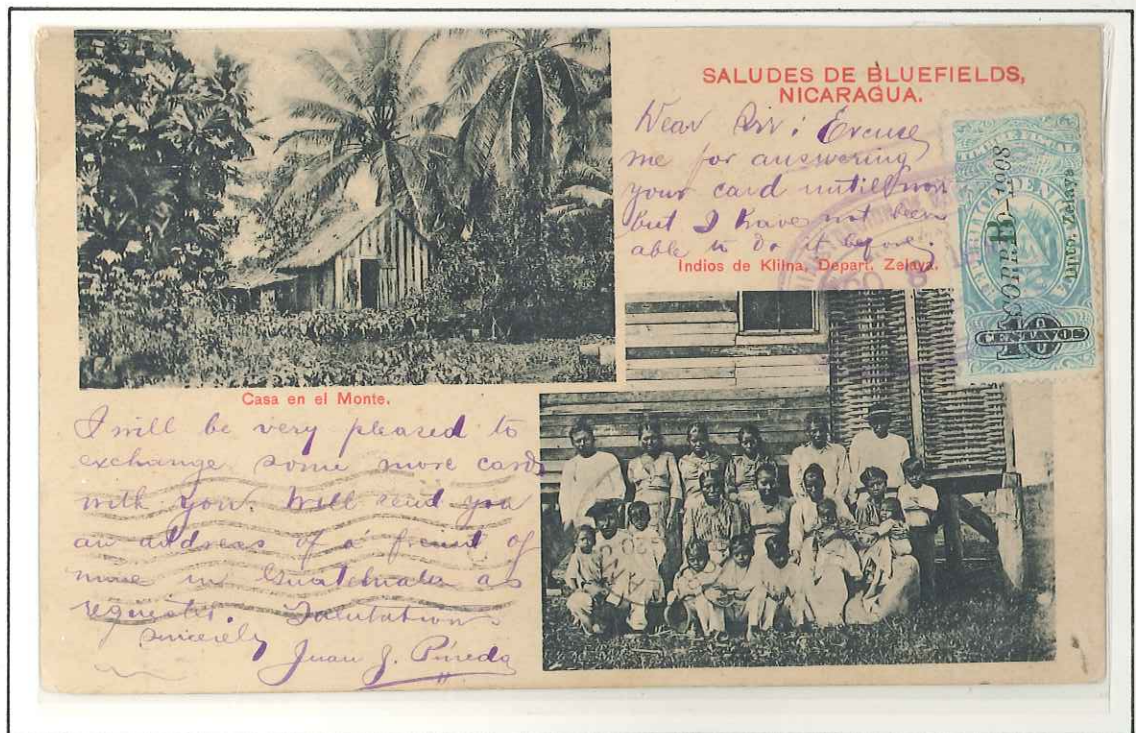 SALUDES DE BLUEFIELDS,
NICARAGUA.
Dear Sir: Excuse
me for answering
your card untill now
but I have not been
able to do it before.
Indios de Klilna, Depart. Zelaya.
TIMBRE FISCAL
CORREO-1908
Dpto. Zelaya
10
CENTAVOS
Casa en el Monte.
I will be very pleased to
exchange some more cards
with you. Will send you
an address of a friend of
mine in Guatemala as
requested. Salutation
sincerely
Juan J. Pineda